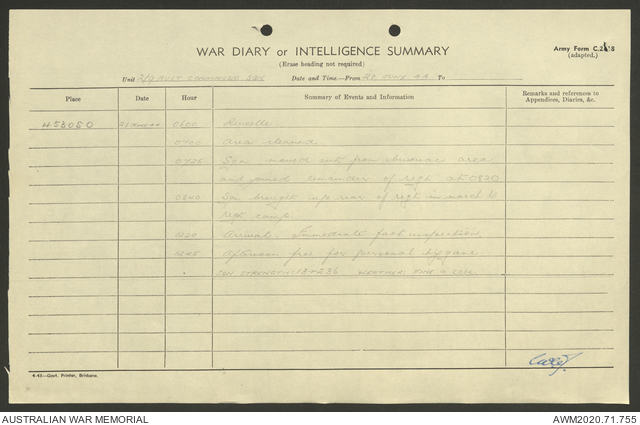 WAR DIARY or INTELLIGENCE SUMMARY
(Erase heading not required)
Army Form C.2118
(adapted.)
Unit 2/9 AUST COMMANDO SQN Date and Time—From 28 JUNE 44 To
Place Date Hour Summary of Events and Information Remarks and references to Appendices, Diaries, &c.
453050 28 JUNE 44 0600 Reveille.
0700 Area cleaned
0725 Sqn moved out from bivouac area
and joined remainder of regt at 0820
0840 Sqn brought up rear of regt in march to
regt camp.
1220 Arrival. Immediate foot inspection.
1245 Afternoon free for personal hygiene.
SQN STRENGTH: 13+236 WEATHER: FINE & COOL.
4-43—Govt. Printer, Brisbane.
AUSTRALIAN WAR MEMORIAL
AWM2020.71.755